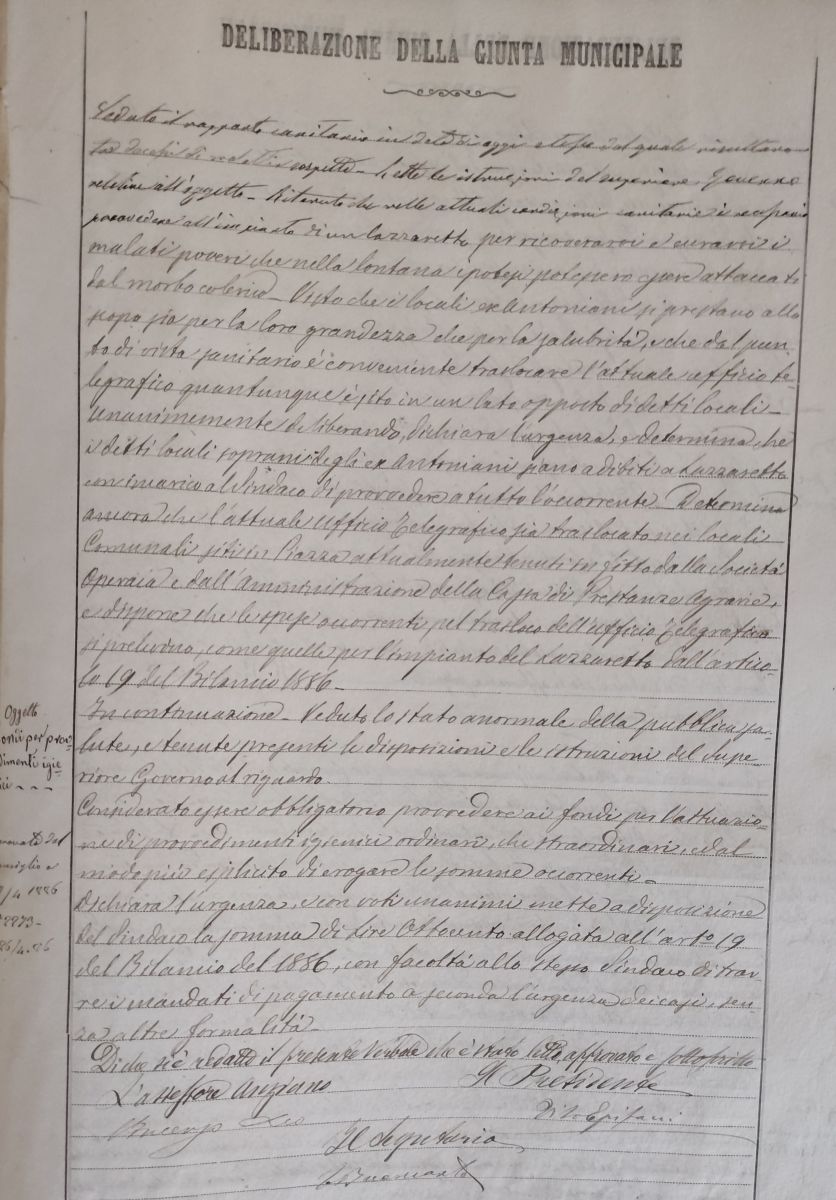 DELIBERAZIONE DELLA GIUNTA MUNICIPALE
Veduto il rapporto sanitario in data di oggi stesso dal quale risultarono
tre decessi di sospetto – Lette le istruzioni del superiore Governo
relative all'oggetto – Ritenuto che nelle attuali condizioni sanitarie è necessario
provvedere all'impianto di un Lazzaretto per ricoverarvi e curarvi i
malati poveri che nella lontana ipotesi potessero essere attaccati
dal morbo colerico – Visto che i locali ex Antoniani si prestano allo
scopo sia per la loro grandezza che per la salubrità, e che dal pun-
to di vista sanitario è conveniente traslocare l'attuale ufficio te-
legrafico quantunque è sito in un lato opposto di detti locali –
Unanimemente deliberando, dichiara l'urgenza, e determina, che
i detti locali soprani degli ex Antoniani siano adibiti a Lazzaretto
con incarico al Sindaco di provvedere a tutto l'occorrente – Determina
ancora che l'attuale Ufficio Telegrafico sia traslocato nei locali
Comunali siti in Piazza attualmente tenuti in fitto dalla Società
Operaia e dall'Amministrazione della Cassa di Prestanze Agrarie,
e dispone che le spese occorrenti pel trasloco dell'Ufficio Telegrafico
si prelevino, come quelle per l'impianto del Lazzaretto dall'artico-
lo 19 del Bilancio 1886 –
In continuazione – Veduto lo stato anormale della pubblica sa-
lute, e tenute presenti le disposizioni e le istruzioni del Supe-
riore Governo al riguardo.
Considerato essere obbligatorio provvedere ai fondi per l'attuazio-
ne di provvedimenti igienici ordinari, che straordinari, e dal
modo più esplicito di erogare le somme occorrenti –
Dichiara l'urgenza, e con voti unanimi mette a disposizione
del Sindaco la somma di Lire Ottocento allogata all'arto 19
del Bilancio del 1886, con facoltà allo stesso Sindaco di trar-
re i mandati di pagamento a seconda l'urgenza dei casi, sen-
za altre formalità –
Di che si è redatto il presente Verbale che è stato letto, approvato e sottoscritto
L'assessore Anziano
Il Presidente
Vito Epifani
Il Segretario
Oggetto
ondi per prov-
dimenti igie-
ici - - -
provato dal
nsiglio a
/4 1886
2973-
26/4.86